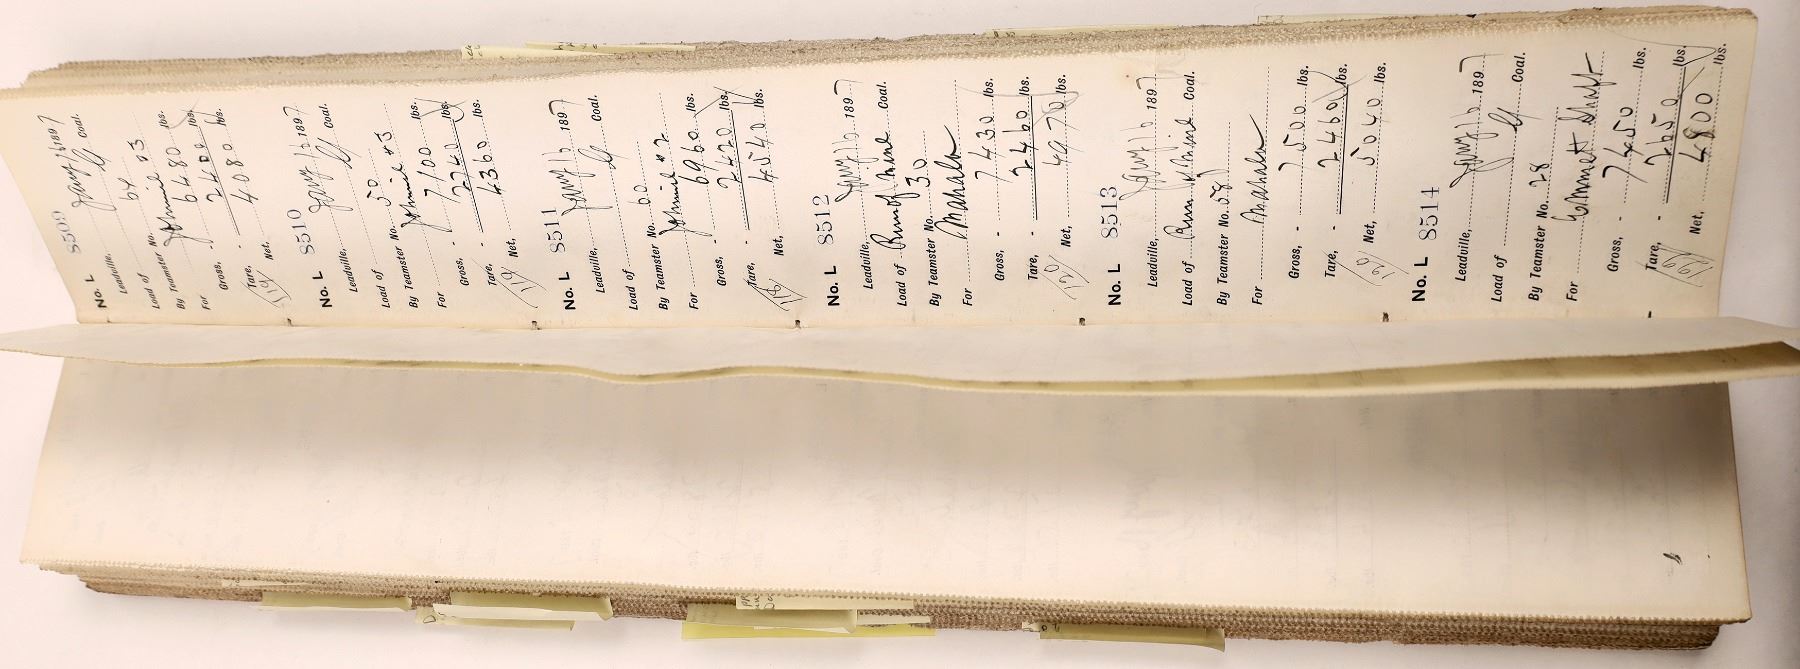 No. L 8509
Leadville, Jany 16 1897
Load of Coal.
By Teamster No. 64
For Johnnie #3
Gross, - 6480 lbs.
Tare, - 2400 lbs.
Net, 4080 lbs.
No. L 8510
Leadville, Jany 16 1897
Load of Coal.
By Teamster No. 50
For Johnnie #3
Gross, - 7100 lbs.
Tare, - 2240 lbs.
119 Net, 4360 lbs.
No. L 8511
Leadville, Jany 16 1897
Load of Coal.
By Teamster No. 60
For Johnnie #2
Gross, - 6960 lbs.
Tare, - 2420 lbs.
Net, 4540 lbs.
No. L 8512
Leadville, Jany 16 1897
Load of Run of Mine Coal.
By Teamster No. 30
For Mahala
Gross, - 7430 lbs.
Tare, - 2460 lbs.
Net, 4970 lbs.
No. L 8513
Leadville, Jany 16 1897
Load of Run of Mine Coal.
By Teamster No. 58
For Mahala
Gross, - 7500 lbs.
Tare, - 2460 lbs.
Net, 5040 lbs.
No. L 8514
Leadville, Jany 16 1897
Load of Coal.
By Teamster No. 28
For Emmett Shaft
Gross, - 7450 lbs.
Tare, - 2650 lbs.
Net, 4800 lbs.